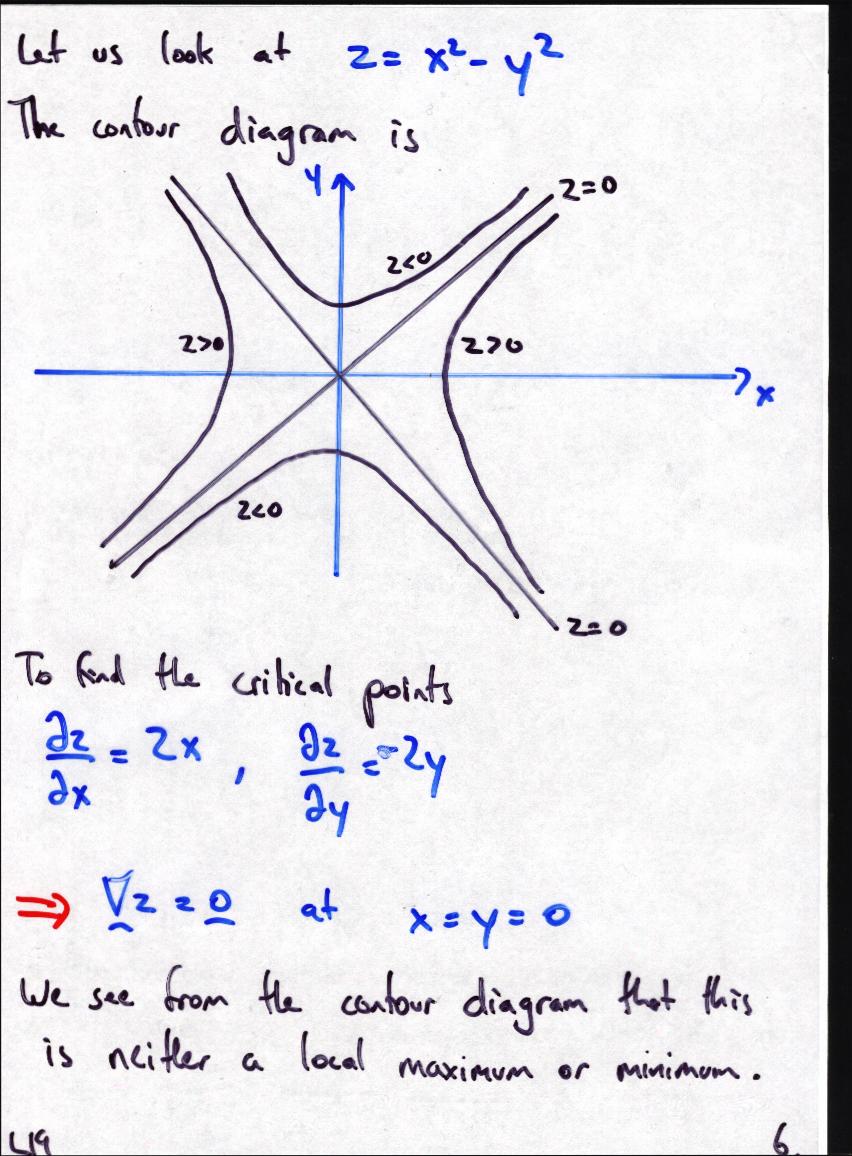 Let us look at z = x² - y²
The contour diagram is
y
z=0
z<0
z>0
z>0
x
z<0
z=0
To find the critical points
∂z/∂x = 2x , ∂z/∂y = -2y
⇒ ∇z = 0 at x = y = 0
We see from the contour diagram that this
is neither a local maximum or minimum.
L19 6.